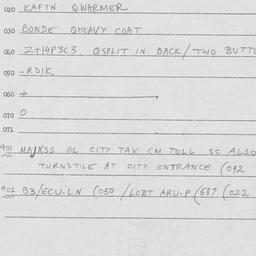 020 KAFTN QWARMER
030 BONDE QHEAVY COAT
040 Z+14P3C3 QSPLIT IN BACK/TWO BUTTO
050 -RDIK
060 +
070 O
071
901 MAJX3S GL CITY TAX CM TOLL SC ALSO
TURNSTILE AT CITY ENTRANCE (092
902 B3/ECU.LN (050 /LOZT ARU.P (587 (022